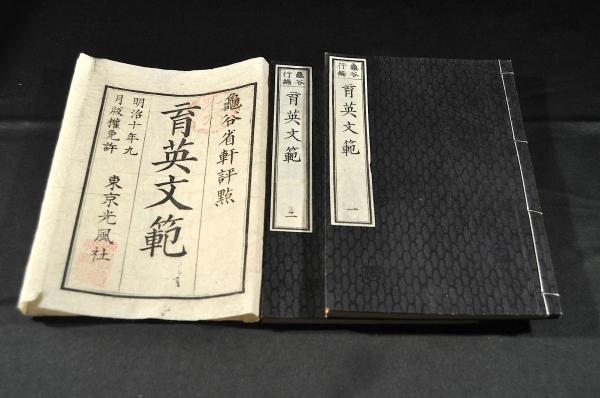 龜谷
行編
育英文範
一
龜谷
行編
育英文範
二
龜谷省軒評點
育英文範
明治十年九
月版權免許
東京光風社